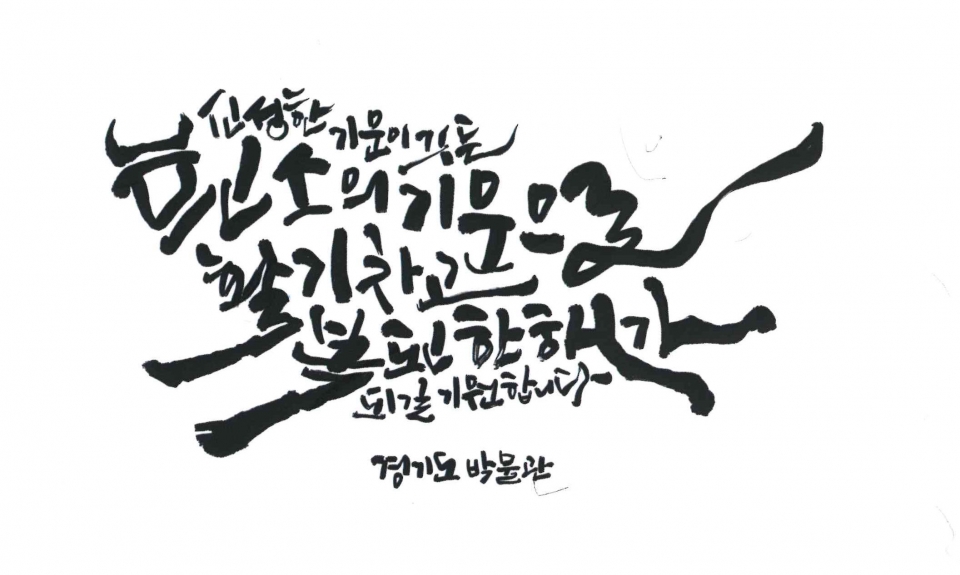 신성한 기운이 깃든
흰 소의 기운으로
활기차고
복된 한 해가
되길 기원합니다
경기도 박물관